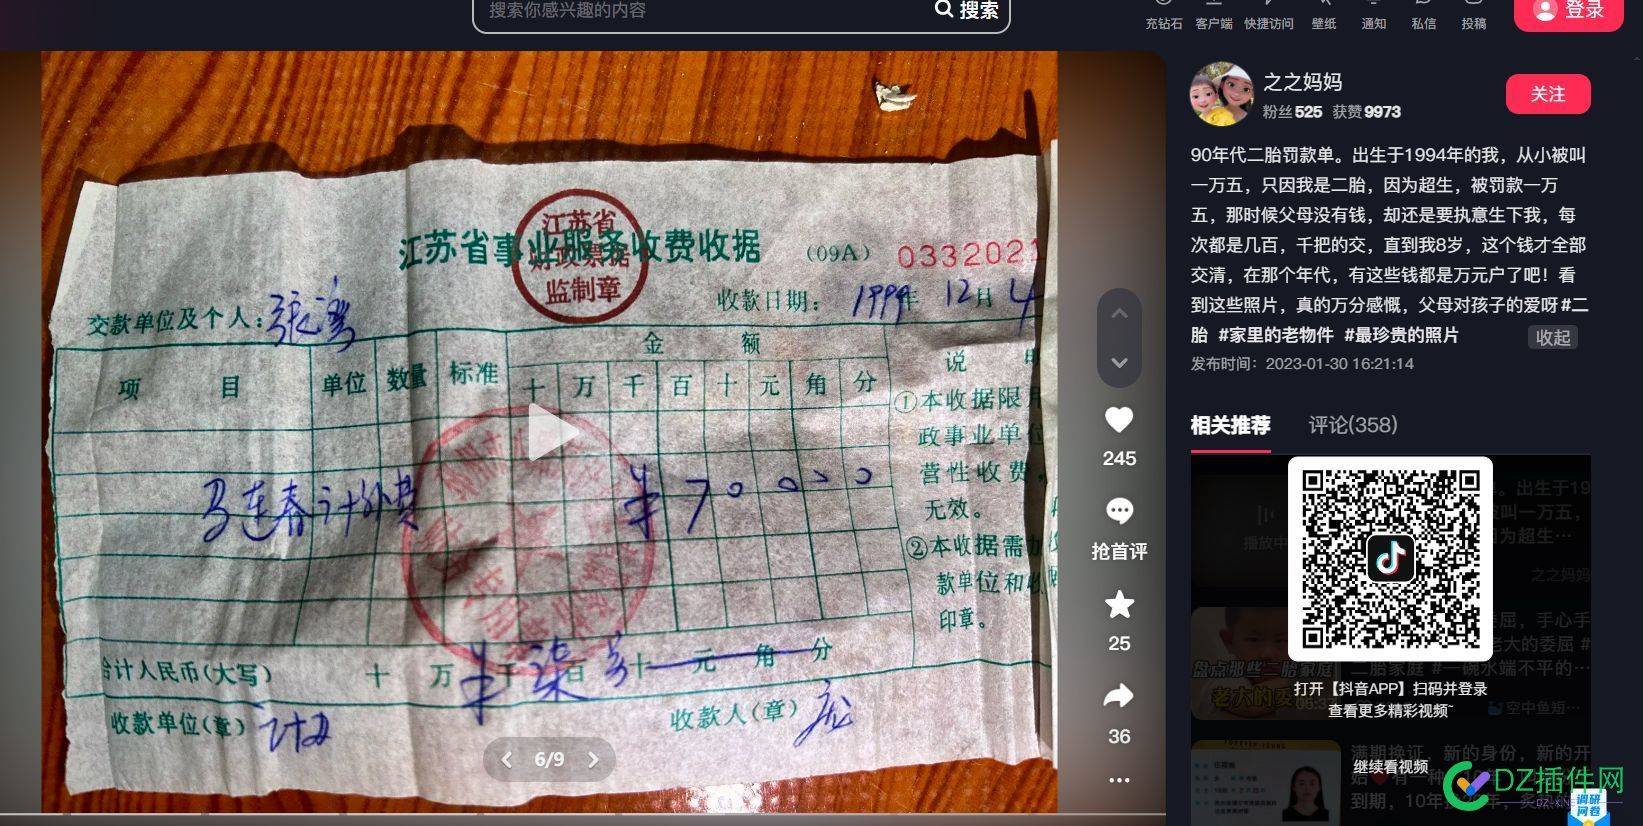 搜索你感兴趣的内容
搜索
充钻石
客户端
快捷访问
壁纸
通知
私信
投稿
登录
江苏省
财政票据
监制章
江苏省事业服务收费收据 (09A) 0332021
收款日期: 1999年 12月 4
交款单位及个人:
金 额
项 目 单位 数量 标准 十 万 千 百 十 元 角 分
说
①本收据限
政事业单
营性收费
无效。
②本收据需
款单位和
印章。
马连春计外费
70000
合计人民币(大写) 十 万 千 柒 百 十 元 角 分
收款单位(章)
收款人(章)
6/9
245
抢首评
25
36
之之妈妈
粉丝525 获赞9973
关注
90年代二胎罚款单。出生于1994年的我，从小被叫
一万五，只因我是二胎，因为超生，被罚款一万
五，那时候父母没有钱，却还是要执意生下我，每
次都是几百，千把的交，直到我8岁，这个钱才全部
交清，在那个年代，有这些钱都是万元户了吧！看
到这些照片，真的万分感慨，父母对孩子的爱呀#二
胎 #家里的老物件 #最珍贵的照片
收起
发布时间：2023-01-30 16:21:14
相关推荐
评论(358)
播放中
。出生于19
叫一万五，
为超生…
之之妈妈
屈，手心手
老大的委屈 #
二胎家庭 #一碗水端不平的…
盘点那些二胎家庭
老大的委
空中鱼短…
打开【抖音APP】扫码并登录
查看更多精彩视频~
继续看视频
满期换证，新的身份，新的开
DZ插件网
DZ-X
调研
问卷